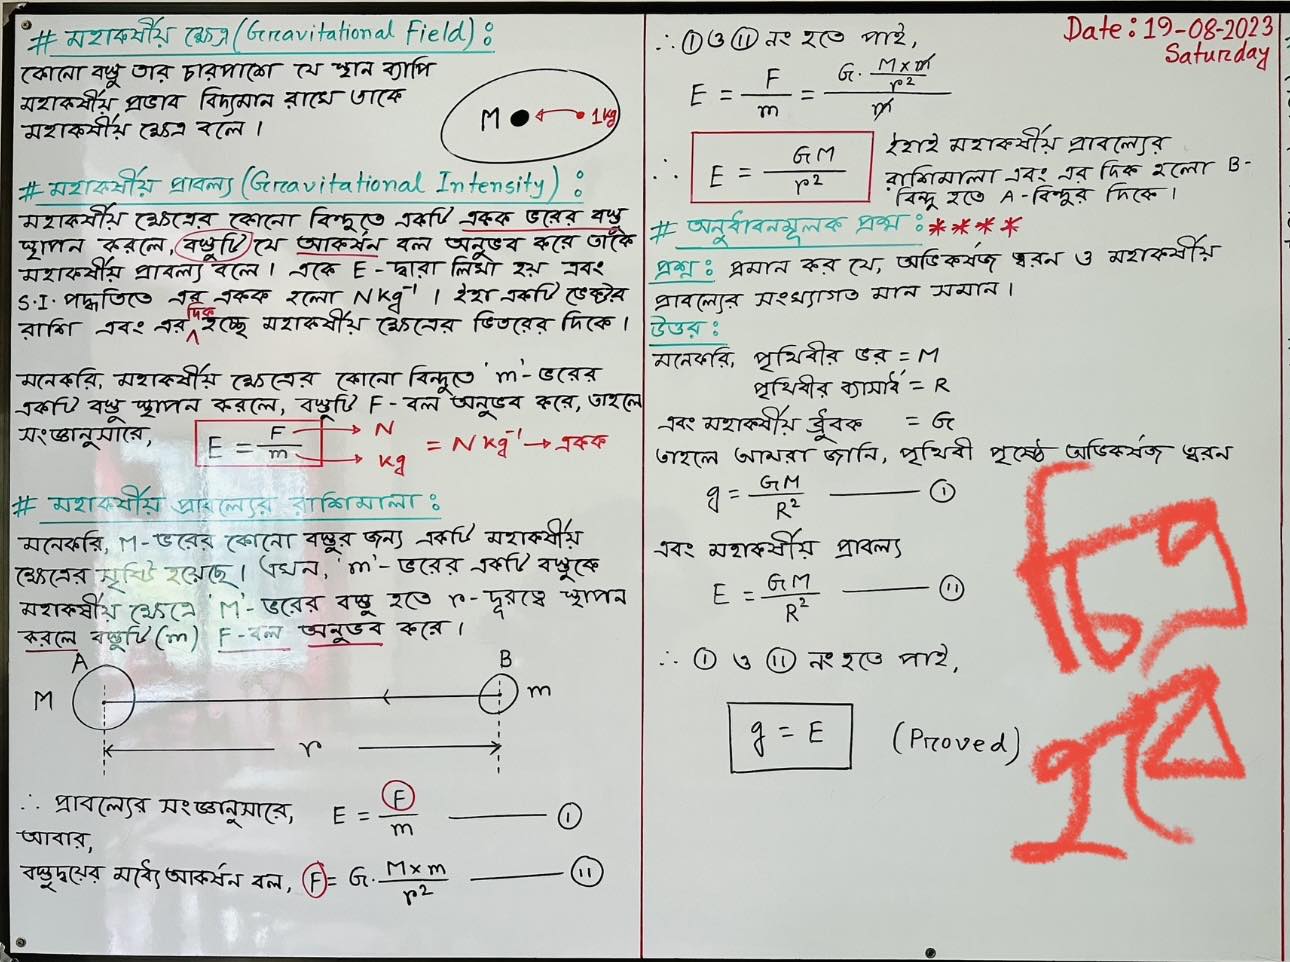 # মহাকর্ষীয় ক্ষেত্র (Gravitational Field) :
কোনো বস্তু তার চারপাশে যে স্থান ব্যাপি
মহাকর্ষীয় প্রভাব বিদ্যমান রাখে তাকে
মহাকর্ষীয় ক্ষেত্র বলে।
M 1kg
# মহাকর্ষীয় প্রাবল্য (Gravitational Intensity) :
মহাকর্ষীয় ক্ষেত্রের কোনো বিন্দুতে একটি একক ভরের বস্তু
স্থাপন করলে, বস্তুটি যে আকর্ষন বল অনুভব করে তাকে
মহাকর্ষীয় প্রাবল্য বলে। একে E - দ্বারা লিখা হয় এবং
S.I. পদ্ধতিতে এর একক হলো Nkg⁻¹। ইহা একটি ভেক্টর
রাশি এবং এর দিক হচ্ছে মহাকর্ষীয় ক্ষেত্রের ভিতরের দিকে।
মনেকরি, মহাকর্ষীয় ক্ষেত্রের কোনো বিন্দুতে 'm'- ভরের
একটি বস্তু স্থাপন করলে, বস্তুটি F - বল অনুভব করে, তাহলে
সংজ্ঞানুসারে, E = F/m → N → kg = Nkg⁻¹ → একক
# মহাকর্ষীয় প্রাবল্যের রাশিমালা :
মনেকরি, M - ভরের কোনো বস্তুর জন্য একটি মহাকর্ষীয়
ক্ষেত্রের সৃষ্টি হয়েছে। এখন, 'm'- ভরের একটি বস্তুকে
মহাকর্ষীয় ক্ষেত্রে 'M'- ভরের বস্তু হতে r - দূরত্বে স্থাপন
করলে বস্তুটি (m) F - বল অনুভব করে।
A B
M m
r
∴ প্রাবল্যের সংজ্ঞানুসারে, E = F/m —— (i)
আবার,
বস্তুদ্বয়ের মধ্যে আকর্ষন বল, F = G. M×m/r² —— (ii)
Date: 19-08-2023
Saturday
∴ (i) ও (ii) নং হতে পাই,
E = F/m = G. M×m/r² / m
∴ E = GM/r² ইহাই মহাকর্ষীয় প্রাবল্যের
রাশিমালা এবং এর দিক হলো B-
বিন্দু হতে A - বিন্দুর দিকে।
# অনুধাবনমূলক প্রশ্ন : ****
প্রশ্ন : প্রমান কর যে, অভিকর্ষজ ত্বরন ও মহাকর্ষীয়
প্রাবল্যের সংখ্যাগত মান সমান।
উত্তর :
মনেকরি, পৃথিবীর ভর = M
পৃথিবীর ব্যাসার্ধ = R
এবং মহাকর্ষীয় ধ্রুবক = G
তাহলে আমরা জানি, পৃথিবী পৃষ্ঠে অভিকর্ষজ ত্বরন
g = GM/R² —— (i)
এবং মহাকর্ষীয় প্রাবল্য
E = GM/R² —— (ii)
∴ (i) ও (ii) নং হতে পাই,
g = E (Proved)